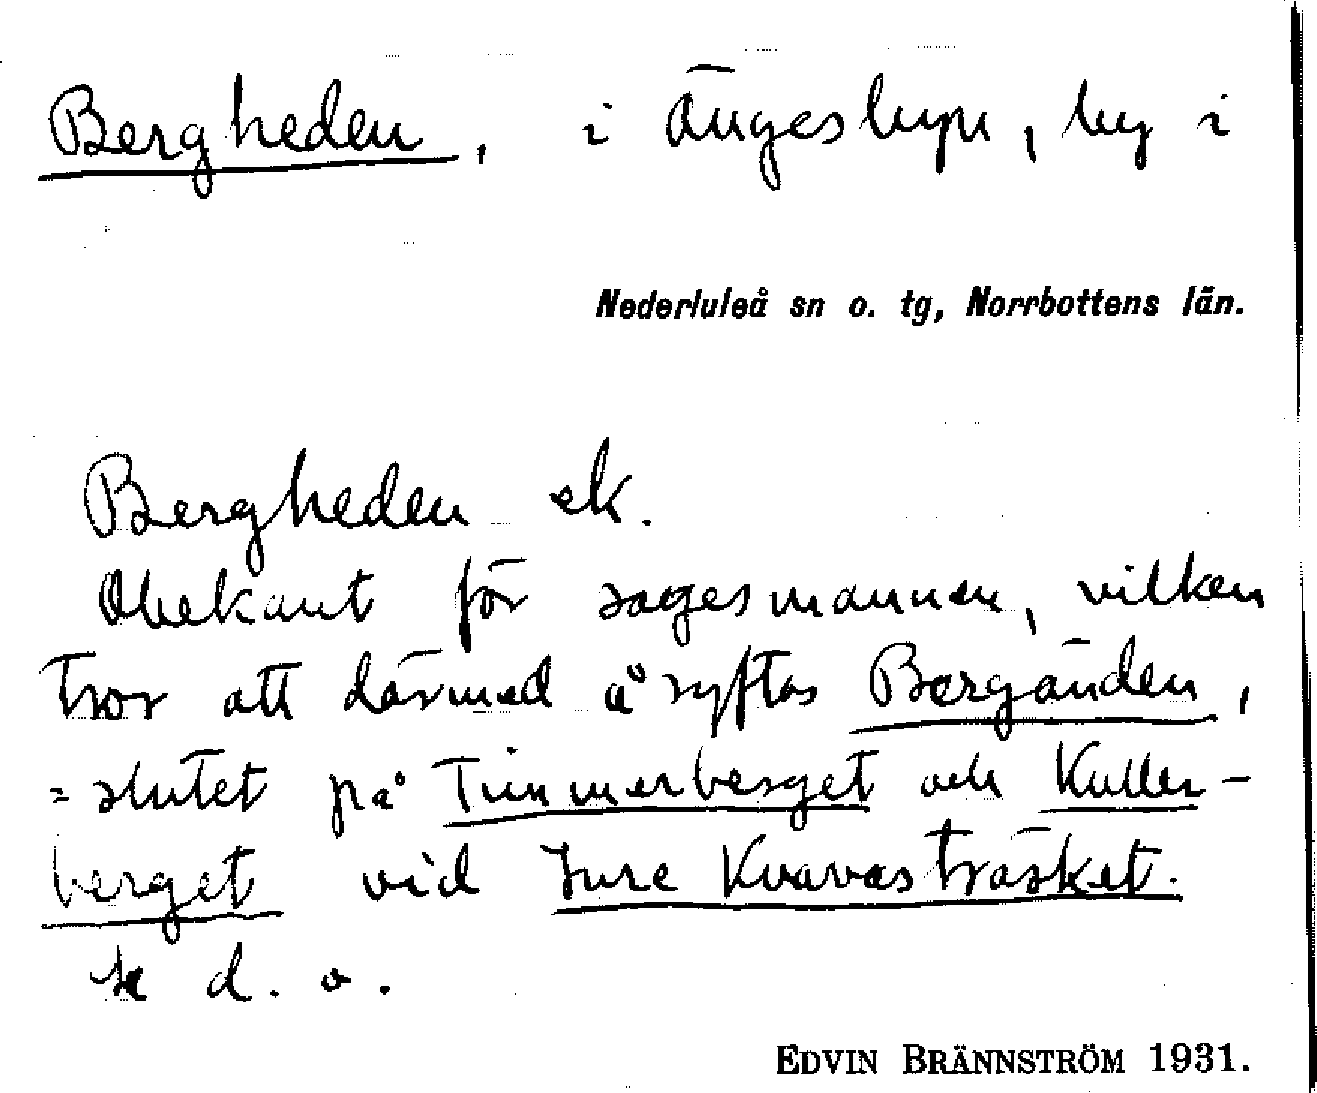 Bergheden, i Ängesbyn, by i
Nederluleå sn o. tg, Norrbottens län.
Bergheden ek.
Obekant för sagesmannen, vilken
tror att därmed åsyftas Bergänden,
= slutet på Timmerberget och Kuller-
berget vid Inre Kvarnträsket.
Se d. o.
EDVIN BRÄNNSTRÖM 1931.